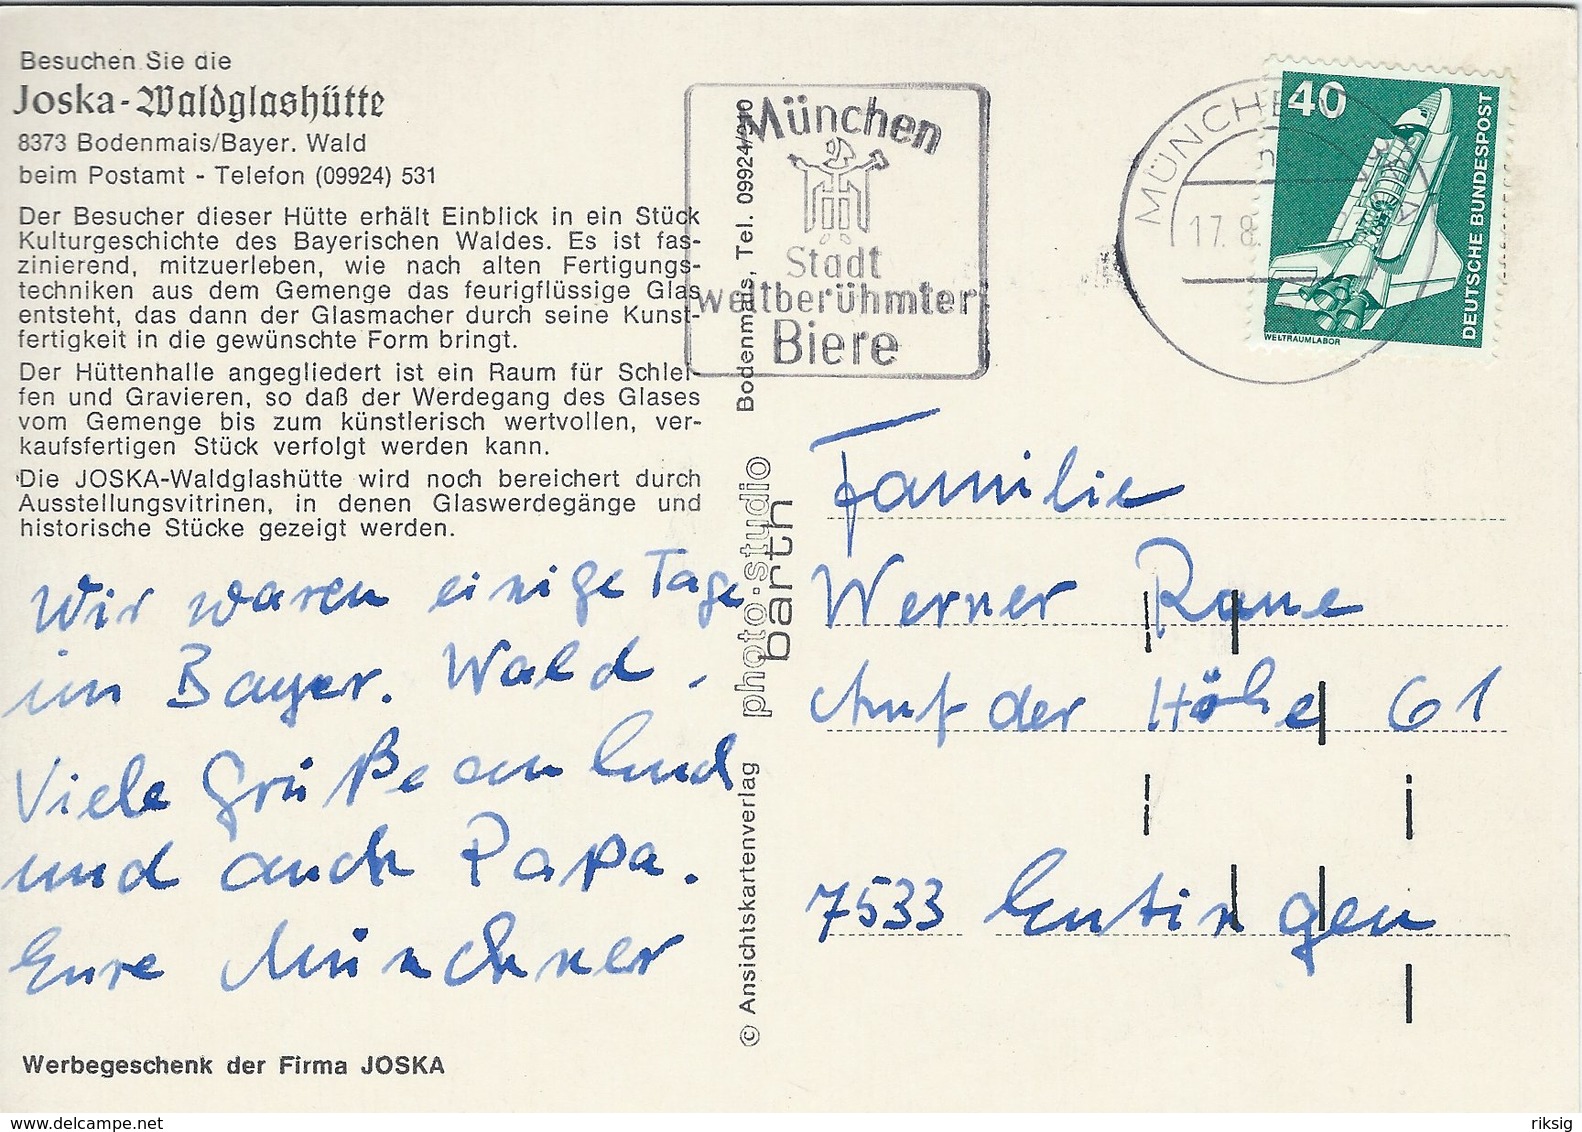 Besuchen Sie die
Joska-Waldglashütte
8373 Bodenmais/Bayer. Wald
beim Postamt - Telefon (09924) 531
Der Besucher dieser Hütte erhält Einblick in ein Stück
Kulturgeschichte des Bayerischen Waldes. Es ist fas-
zinierend, mitzuerleben, wie nach alten Fertigungs-
techniken aus dem Gemenge das feurigflüssige Glas
entsteht, das dann der Glasmacher durch seine Kunst-
fertigkeit in die gewünschte Form bringt.
Der Hüttenhalle angegliedert ist ein Raum für Schlei-
fen und Gravieren, so daß der Werdegang des Glases
vom Gemenge bis zum künstlerisch wertvollen, ver-
kaufsfertigen Stück verfolgt werden kann.
Die JOSKA-Waldglashütte wird noch bereichert durch
Ausstellungsvitrinen, in denen Glaswerdegänge und
historische Stücke gezeigt werden.
Wir waren einige Tage
im Bayer. Wald.
Viele Grüße an
und auch Papa.
Eure Münchner
Werbegeschenk der Firma JOSKA
© Ansichtskartenverlag photo-studio barth Bodenmais, Tel. 09924/
München
Stadt
weltberühmter
Biere
MÜNCHEN
17.8.
40
DEUTSCHE BUNDESPOST
WELTRAUMLABOR
Familie
Werner
Auf der Höhe 61
7533 Eutingen
delcampe.net
riksig